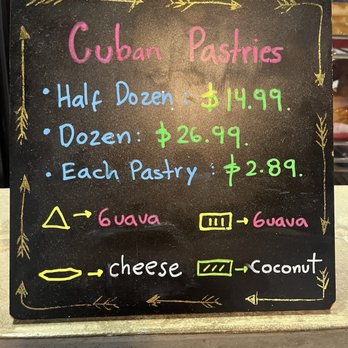 Cuban Pastries
• Half Dozen: $14.99.
• Dozen: $26.99.
• Each Pastry: $2.89.
→ Guava
→ Guava
→ cheese
→ coconut